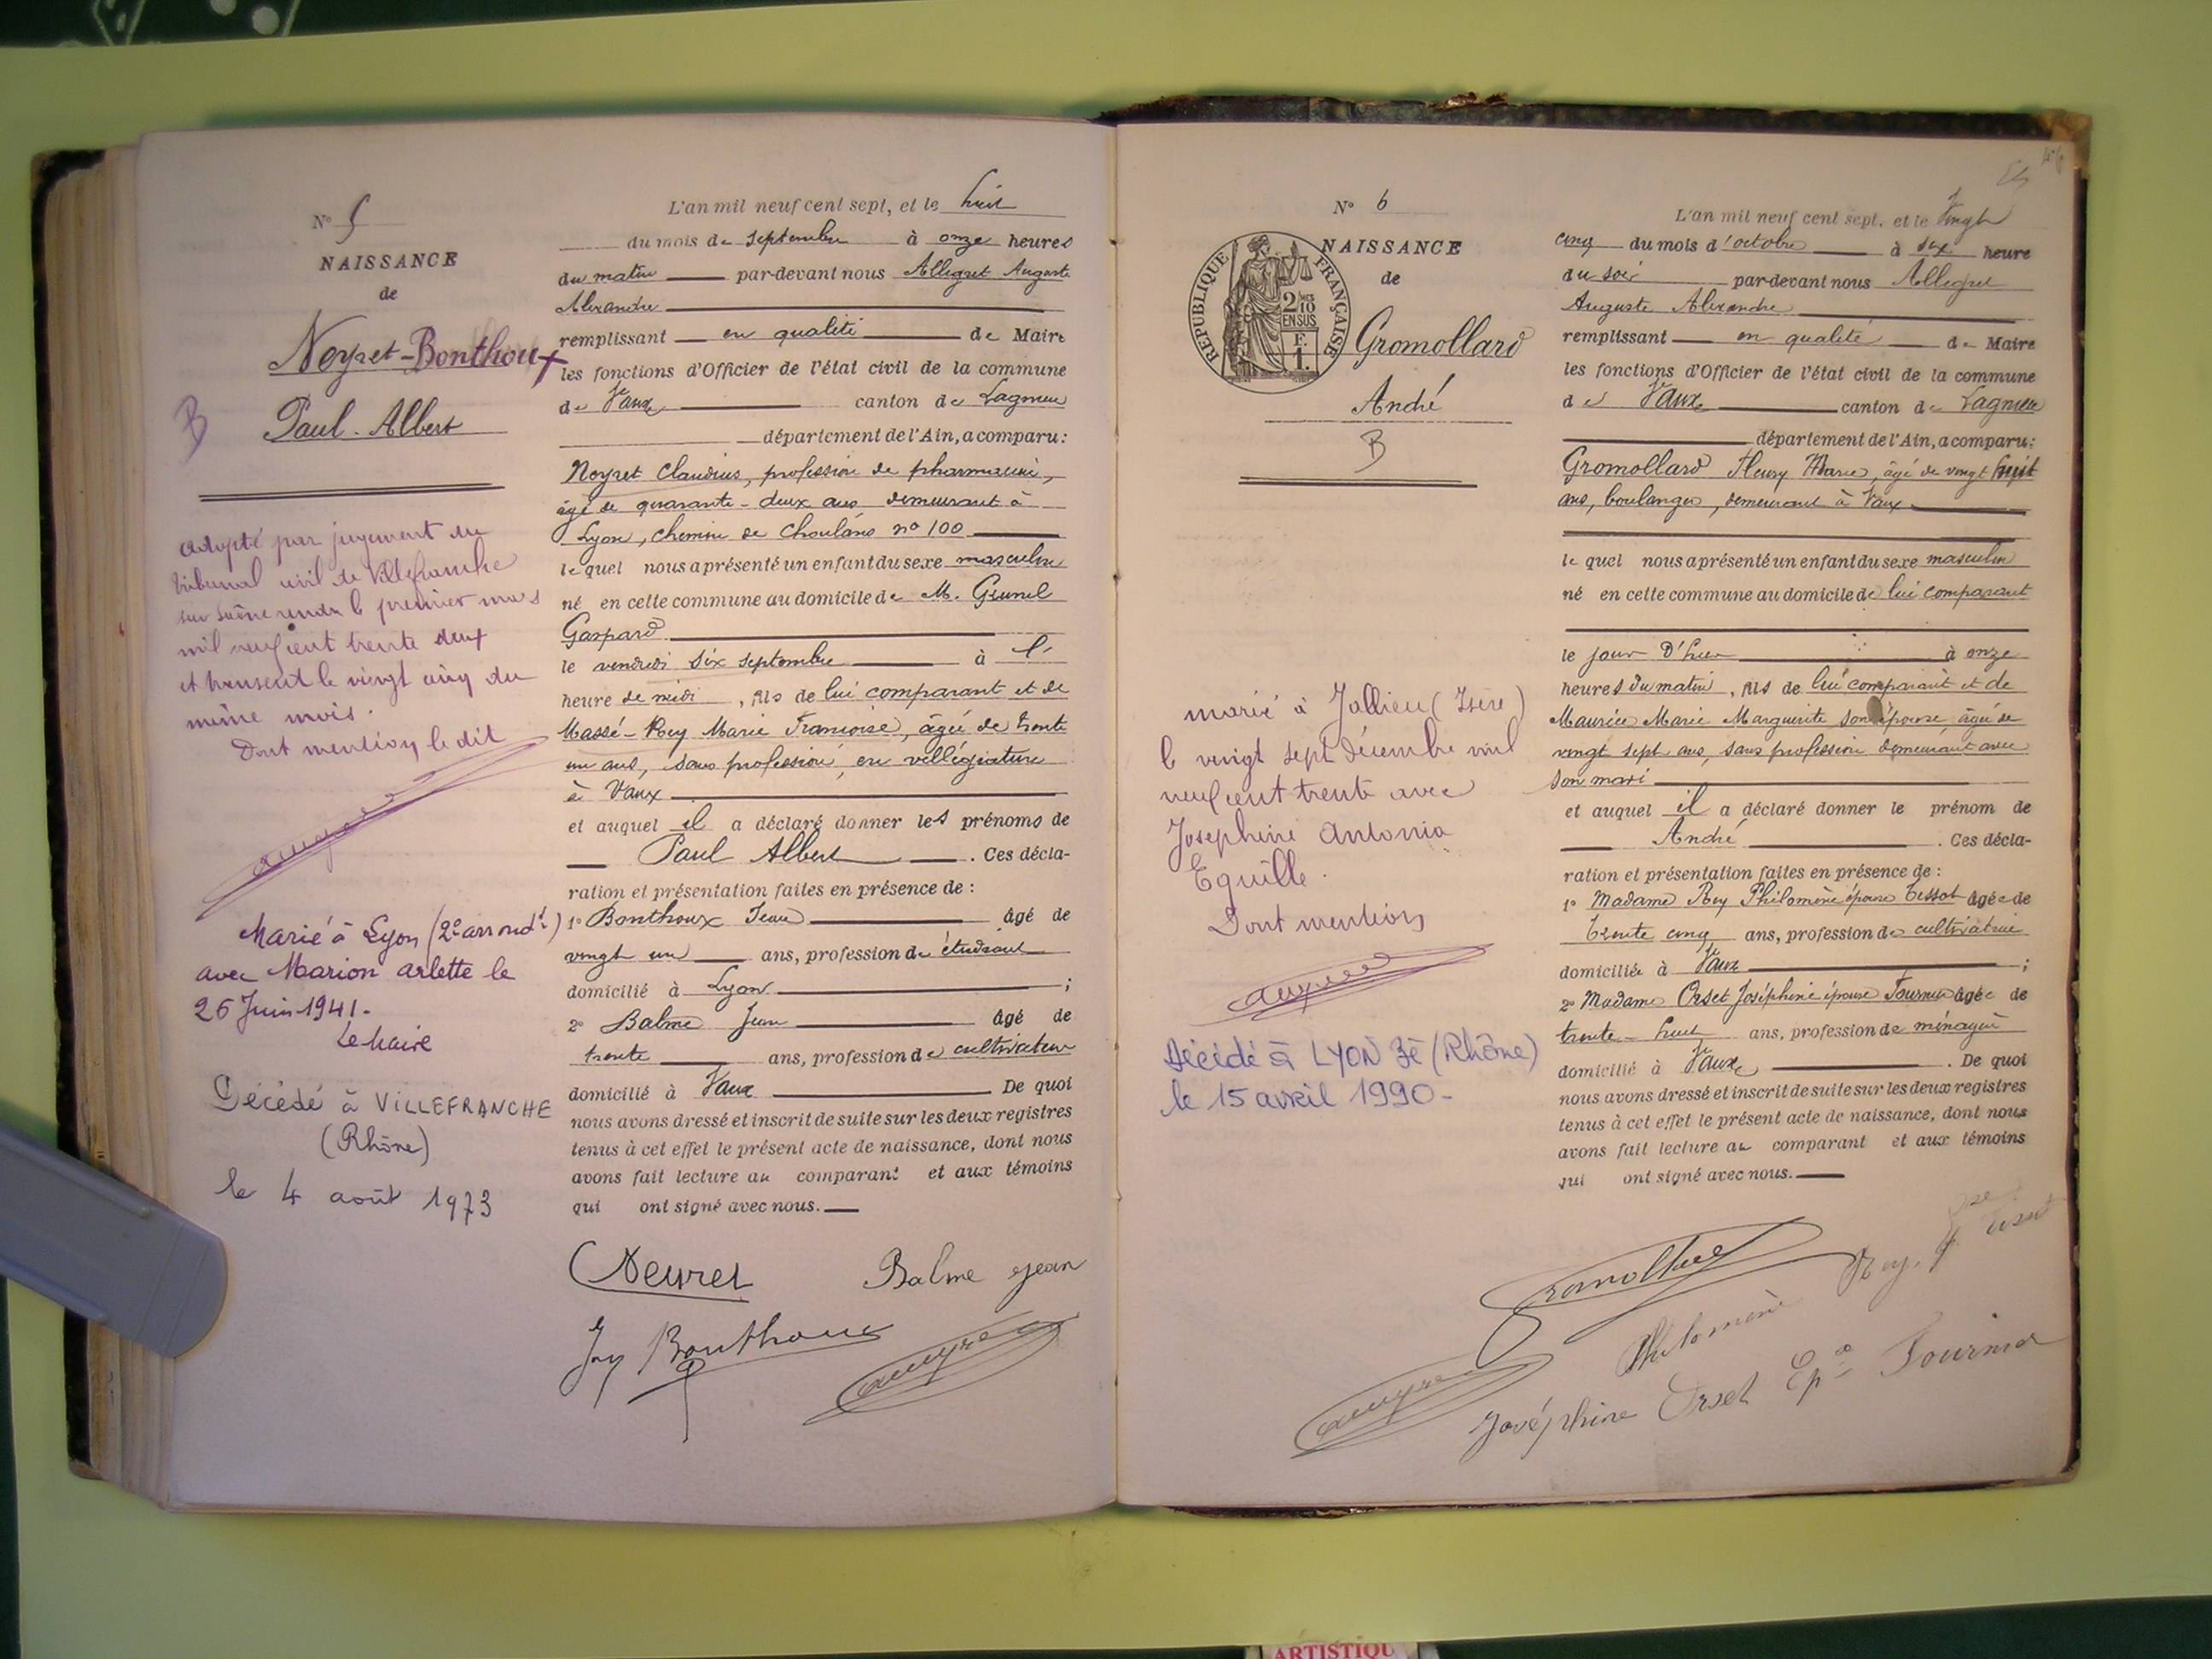 N° 5
NAISSANCE
de
Neyret-Bonthoux
Paul-Albert
B
adopté par jugement du
tribunal civil de Villefranche
sur Saône rendu le premier mars
mil neuf cent trente deux
et transcrit le vingt cinq du
même mois.
Dont mention le dit
Marié à Lyon (2e arrondt)
avec Marion Arlette le
26 Juin 1941.
Le Maire
Décédé à VILLEFRANCHE
(Rhône)
le 4 août 1973
L'an mil neuf cent sept, et le huit
du mois de septembre à onze heures
du matin par-devant nous Allegret Auguste
Alexandre
remplissant en qualité de Maire
les fonctions d'Officier de l'état civil de la commune
de Vaux canton de Lagnieu
département de l'Ain, a comparu:
Neyret Claudius, profession de pharmacien,
âgé de quarante-deux ans demeurant à
Lyon, chemin de Choulans n° 100
le quel nous a présenté un enfant du sexe masculin
né en cette commune au domicile de M. Grunel
Gaspard
le vendredi six septembre à l'
heure de midi, fils de lui comparant et de
Massé-Rey Marie Françoise, âgée de trente
un ans, sans profession, en villégiature
à Vaux
et auquel il a déclaré donner les prénoms de
Paul Albert. Ces décla-
ration et présentation faites en présence de :
1° Bonthoux Jean âgé de
vingt un ans, profession de étudiant
domicilié à Lyon ;
2° Balme Jean âgé de
trente ans, profession de cultivateur
domicilié à Vaux De quoi
nous avons dressé et inscrit de suite sur les deux registres
tenus à cet effet le présent acte de naissance, dont nous
avons fait lecture au comparant et aux témoins
qui ont signé avec nous.
CNeyret Balme Jean
Bonthoux
N° 6
NAISSANCE
de
RÉPUBLIQUE FRANÇAISE
2/10 MES
EN SUS
F.
1.
Gromollard
André
B
marié à Jallieu (Isère)
le vingt sept décembre mil
neuf cent trente avec
Josephine Antonia
Equille.
Dont mention
Décédé à LYON 3è (Rhône)
le 15 avril 1990-
L'an mil neuf cent sept, et le vingt
cinq du mois d'octobre à six heure
du soir par-devant nous Allegret
Auguste Alexandre
remplissant en qualité de Maire
les fonctions d'Officier de l'état civil de la commune
de Vaux canton de Lagnieu
département de l'Ain, a comparu:
Gromollard Fleury Marie, âgé de vingt huit
ans, boulanger, demeurant à Vaux
le quel nous a présenté un enfant du sexe masculin
né en cette commune au domicile de lui comparant
le jour d'hier à onze
heures du matin, fils de lui comparant et de
Maurice Marie Marguerite son épouse âgée de
vingt sept ans, sans profession demeurant avec
son mari
et auquel il a déclaré donner le prénom de
André. Ces décla-
ration et présentation faites en présence de :
1° Madame Rey Philomène épouse Tessot âgée de
trente cinq ans, profession de cultivatrice
domiciliée à Vaux ;
2° Madame Orset Joséphine épouse Fournier âgée de
trente-huit ans, profession de ménagère
domicilié à Vaux. De quoi
nous avons dressé et inscrit de suite sur les deux registres
tenus à cet effet le présent acte de naissance, dont nous
avons fait lecture au comparant et aux témoins
qui ont signé avec nous.
Gromollard
Philomène Rey
Joséphine Orset Epse Fournier
ARTISTIQU